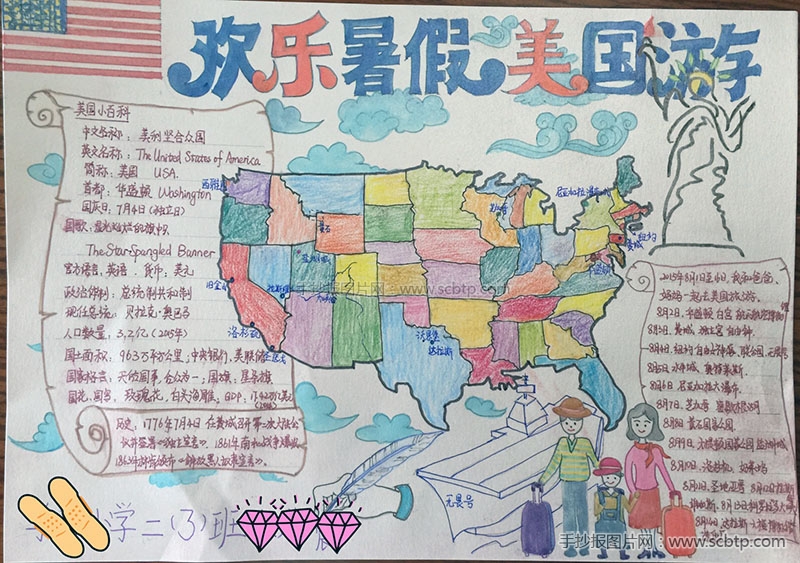 欢乐暑假美国游
美国小百科
中文名称：美利坚合众国
英文名称：The United States of America
简称：美国 USA.
首都：华盛顿 Washington
国庆日：7月4日（独立日）
国歌：星光灿烂的旗帜
The Star Spangled Banner
官方语言：英语．货币：美元
政治体制：总统制共和制
现任总统：贝拉克·奥巴马
人口数量：3.2亿（2015年）
国土面积：963万平方公里；中央银行：美联储
国家格言：天佑国事，合众为一；国旗：星条旗
国花、国鸟：玫瑰花、白头海雕
历史：1776年7月4日在费城召开第二次大陆会
1861年南北战争爆发
西雅图
旧金山
洛杉矶
黄石
芝加哥
尼亚加拉瀑布
纽约
费城
华盛顿
达拉斯
无畏号
手抄报图片网 - www.scbtp.com
2015年8月1日至16日，我和爸爸、
妈妈一起去美国旅游。
8月2日，华盛顿 白宫
8月3日，费城，独立宫 自由钟
8月4日，纽约 自由女神像，联合国
8月5日，水牛城
8月6日 尼亚加拉大瀑布
8月7日，芝加哥
8月8日 黄石国家公园
8月9日，大提顿国家公园 盐湖城
8月10日，洛杉矶
8月11日，圣地亚哥 8月12日
8月14日，达拉斯
小学二(3)班
手抄报图片网：www.scbtp.com